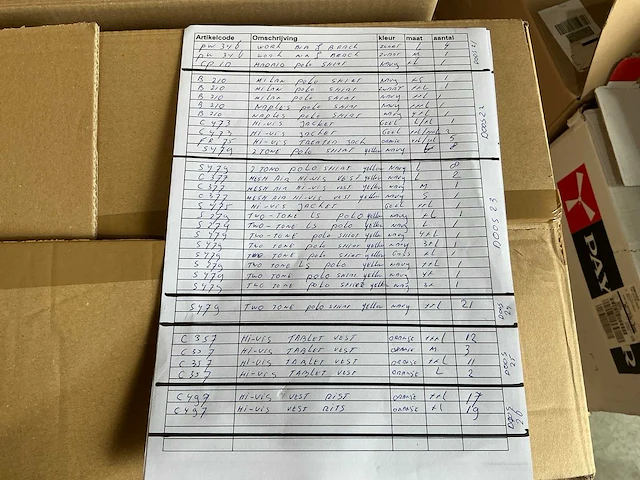 Artikelcode Omschrijving kleur maat aantal
PW 346 WORK BIB & BRACE ZWART L 4
PW 346 WORK BIB & BRACE ZWART M 1
MADRID POLO SHIRT NAVY XL 1
DOOS 21
B 210 MILAN POLO SHIRT NAVY 1
B 210 MILAN POLO SHIRT ZWART XXL 1
B 210 MILAN POLO SHIRT NAVY 1
B 210 NAPLES POLO SHIRT NAVY 1
B 210 NAPLES POLO SHIRT NAVY 1
C 473 HI-VIS JACKET GEEL 1
C 473 HI-VIS JACKET GEEL
HI-VIS ORANJE 5
S479 2 TONE POLO SHIRT yellow NAVY L 8
DOOS 22
S479 2 TONE POLO SHIRT yellow NAVY L 8
C377 MESH AIR HI-VIS VEST yellow NAVY L 2
C377 MESH AIR HI-VIS VEST yellow NAVY M 1
C377 MESH AIR HI-VIS VEST yellow NAVY S 1
HI-VIS JACKET GEEL 1
S279 TWO-TONE LS POLO yellow NAVY XL 1
S279 TWO-TONE LS POLO yellow NAVY L 1
S479 TWO TONE POLO SHIRT yellow NAVY 1
S479 TWO TONE POLO SHIRT yellow NAVY 1
S479 TWO TONE POLO SHIRT yellow XL 1
S479 TWO TONE LS POLO yellow NAVY XXL 1
S479 TWO TONE POLO SHIRT yellow NAVY 1
S479 TWO TONE POLO SHIRT yellow NAVY 1
DOOS 23
S479 TWO TONE POLO SHIRT yellow NAVY XXL 21
DOOS 24
C 357 HI-VIS TABLET VEST ORANJE XXL 12
C 357 HI-VIS TABLET VEST ORANJE M 3
C 357 HI-VIS TABLET VEST ORANJE XXL 11
C 357 HI-VIS TABLET VEST ORANJE L 2
DOOS 25
C 497 HI-VIS VEST ORANJE XXL 17
C 497 HI-VIS VEST ORANJE XL 19
DOOS 26
PAY